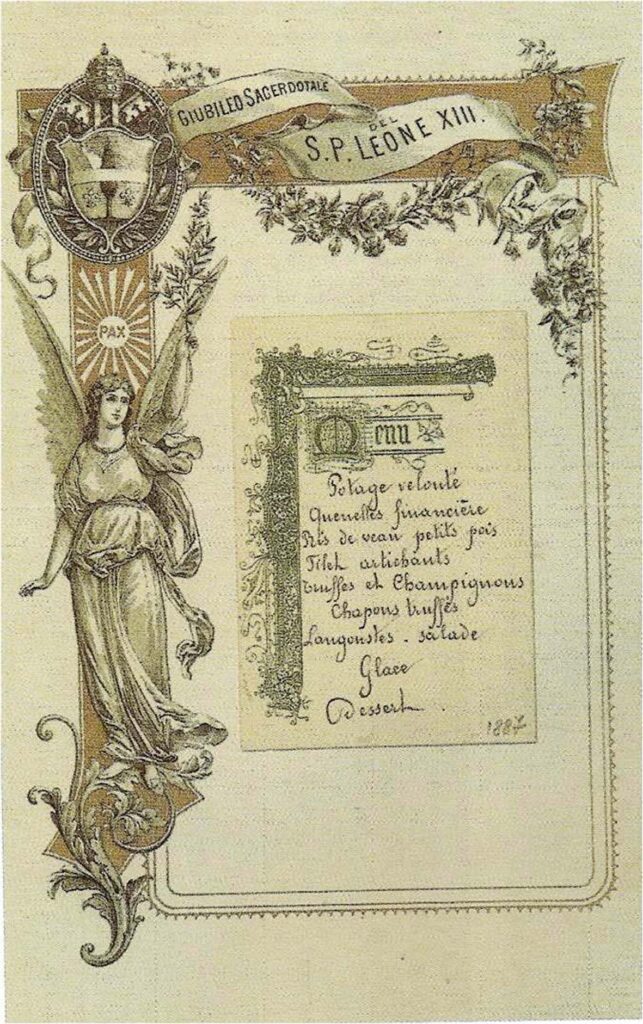 GIUBILEO SACERDOTALE
DEL
S.P. LEONE XIII.
PAX
Menu
Potage velouté
Quenelles financière
Ris de veau petits pois
Filet artichauts
Truffes et Champignons
Chapons truffés
Langoustes - salade
Glace
Dessert.
1887